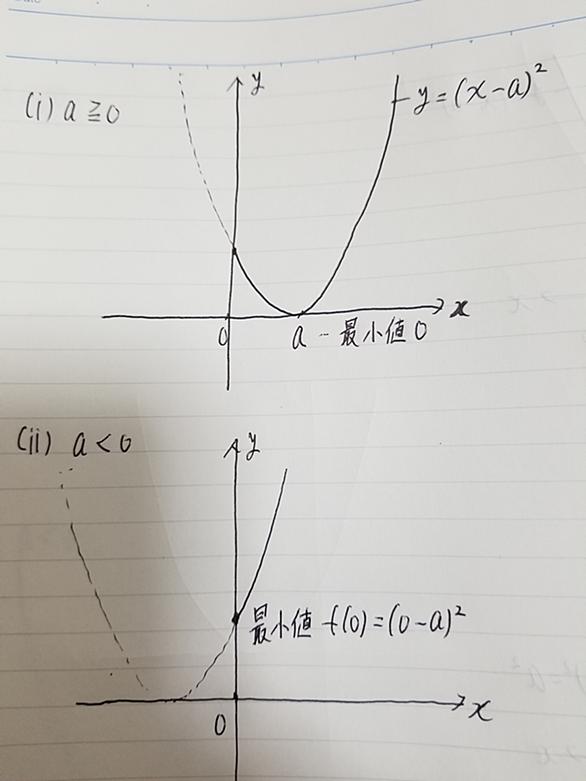 (i) a ≧ 0
y
y = (x-a)²
x
0
a … 最小値 0
(ii) a < 0
y
最小値 f(0) = (0-a)²
x
0